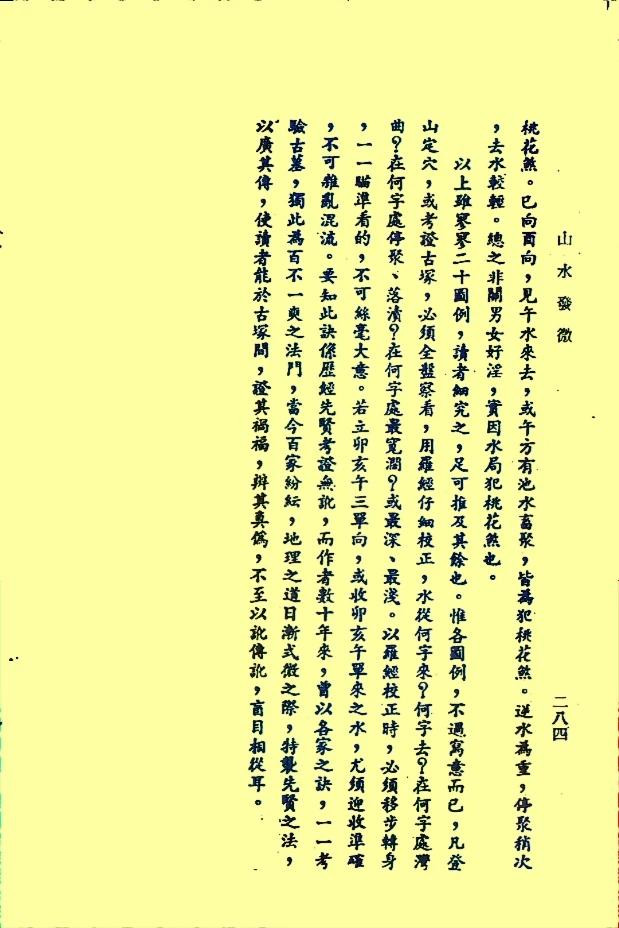 山水發微
二八四
桃花煞。巳向酉向，見午水來去，或午方有池水畜聚，皆為犯桃花煞。逆水為重，停聚稍次
，去水較輕。總之非關男女好淫，實因水局犯桃花煞也。
以上雖寥寥二十圖例，讀者細究之，足可推及其餘也。惟各圖例，不過寫意而已，凡登
山定穴，或考證古塚，必須全盤察看，用羅經仔細校正，水從何字來？何字去？在何字處灣
曲？在何字處停聚、落漬？在何字處最寬濶？或最深、最淺。以羅經校正時，必須移步轉身
，一一瞄準看的，不可絲毫大意。若立卯亥午三單向，或收卯亥午單來之水，尤須迎收準確
，不可雜亂混流。要知此訣係歷經先賢考證無訛，而作者數十年來，曾以各家之訣，一一考
驗古墓，獨此為百不一爽之法門，當今百家紛紜，地理之道日漸式微之際，特襲先賢之法，
以廣其傳，使讀者能於古塚間，證其禍福，辨其真僞，不至以訛傳訛，盲目相從耳。